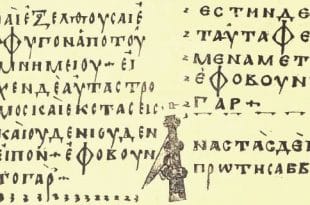 ΚΑΙΕΞΕΛΘΟΥΣΑΙΕ
ΦΥΓΟΝΑΠΟΤΟΥ
ΜΝΗΜΕΙΟΥ+ΕΙ
ΧΕΝΔΕΑΥΤΑΣΤΡΟ
ΜΟΣΚΑΙΕΚΣΤΑΣΕΙΣ
ΚΑΙΟΥΔΕΝΙΟΥΔΕΝ
ΕΙΠΟΝ+ΕΦΟΒΟΥΝ
ΤΟΓΑΡ+
ΕΣΤΗΝΔΕ
ΤΑΥΤΑΦΕ
ΜΕΝΑΜΕΤ
ΕΦΟΒΟΥΝ
ΓΑΡ+
ΑΝΑΣΤΑΣΔΕ
ΠΡΩΤΗΣΑΒΒ